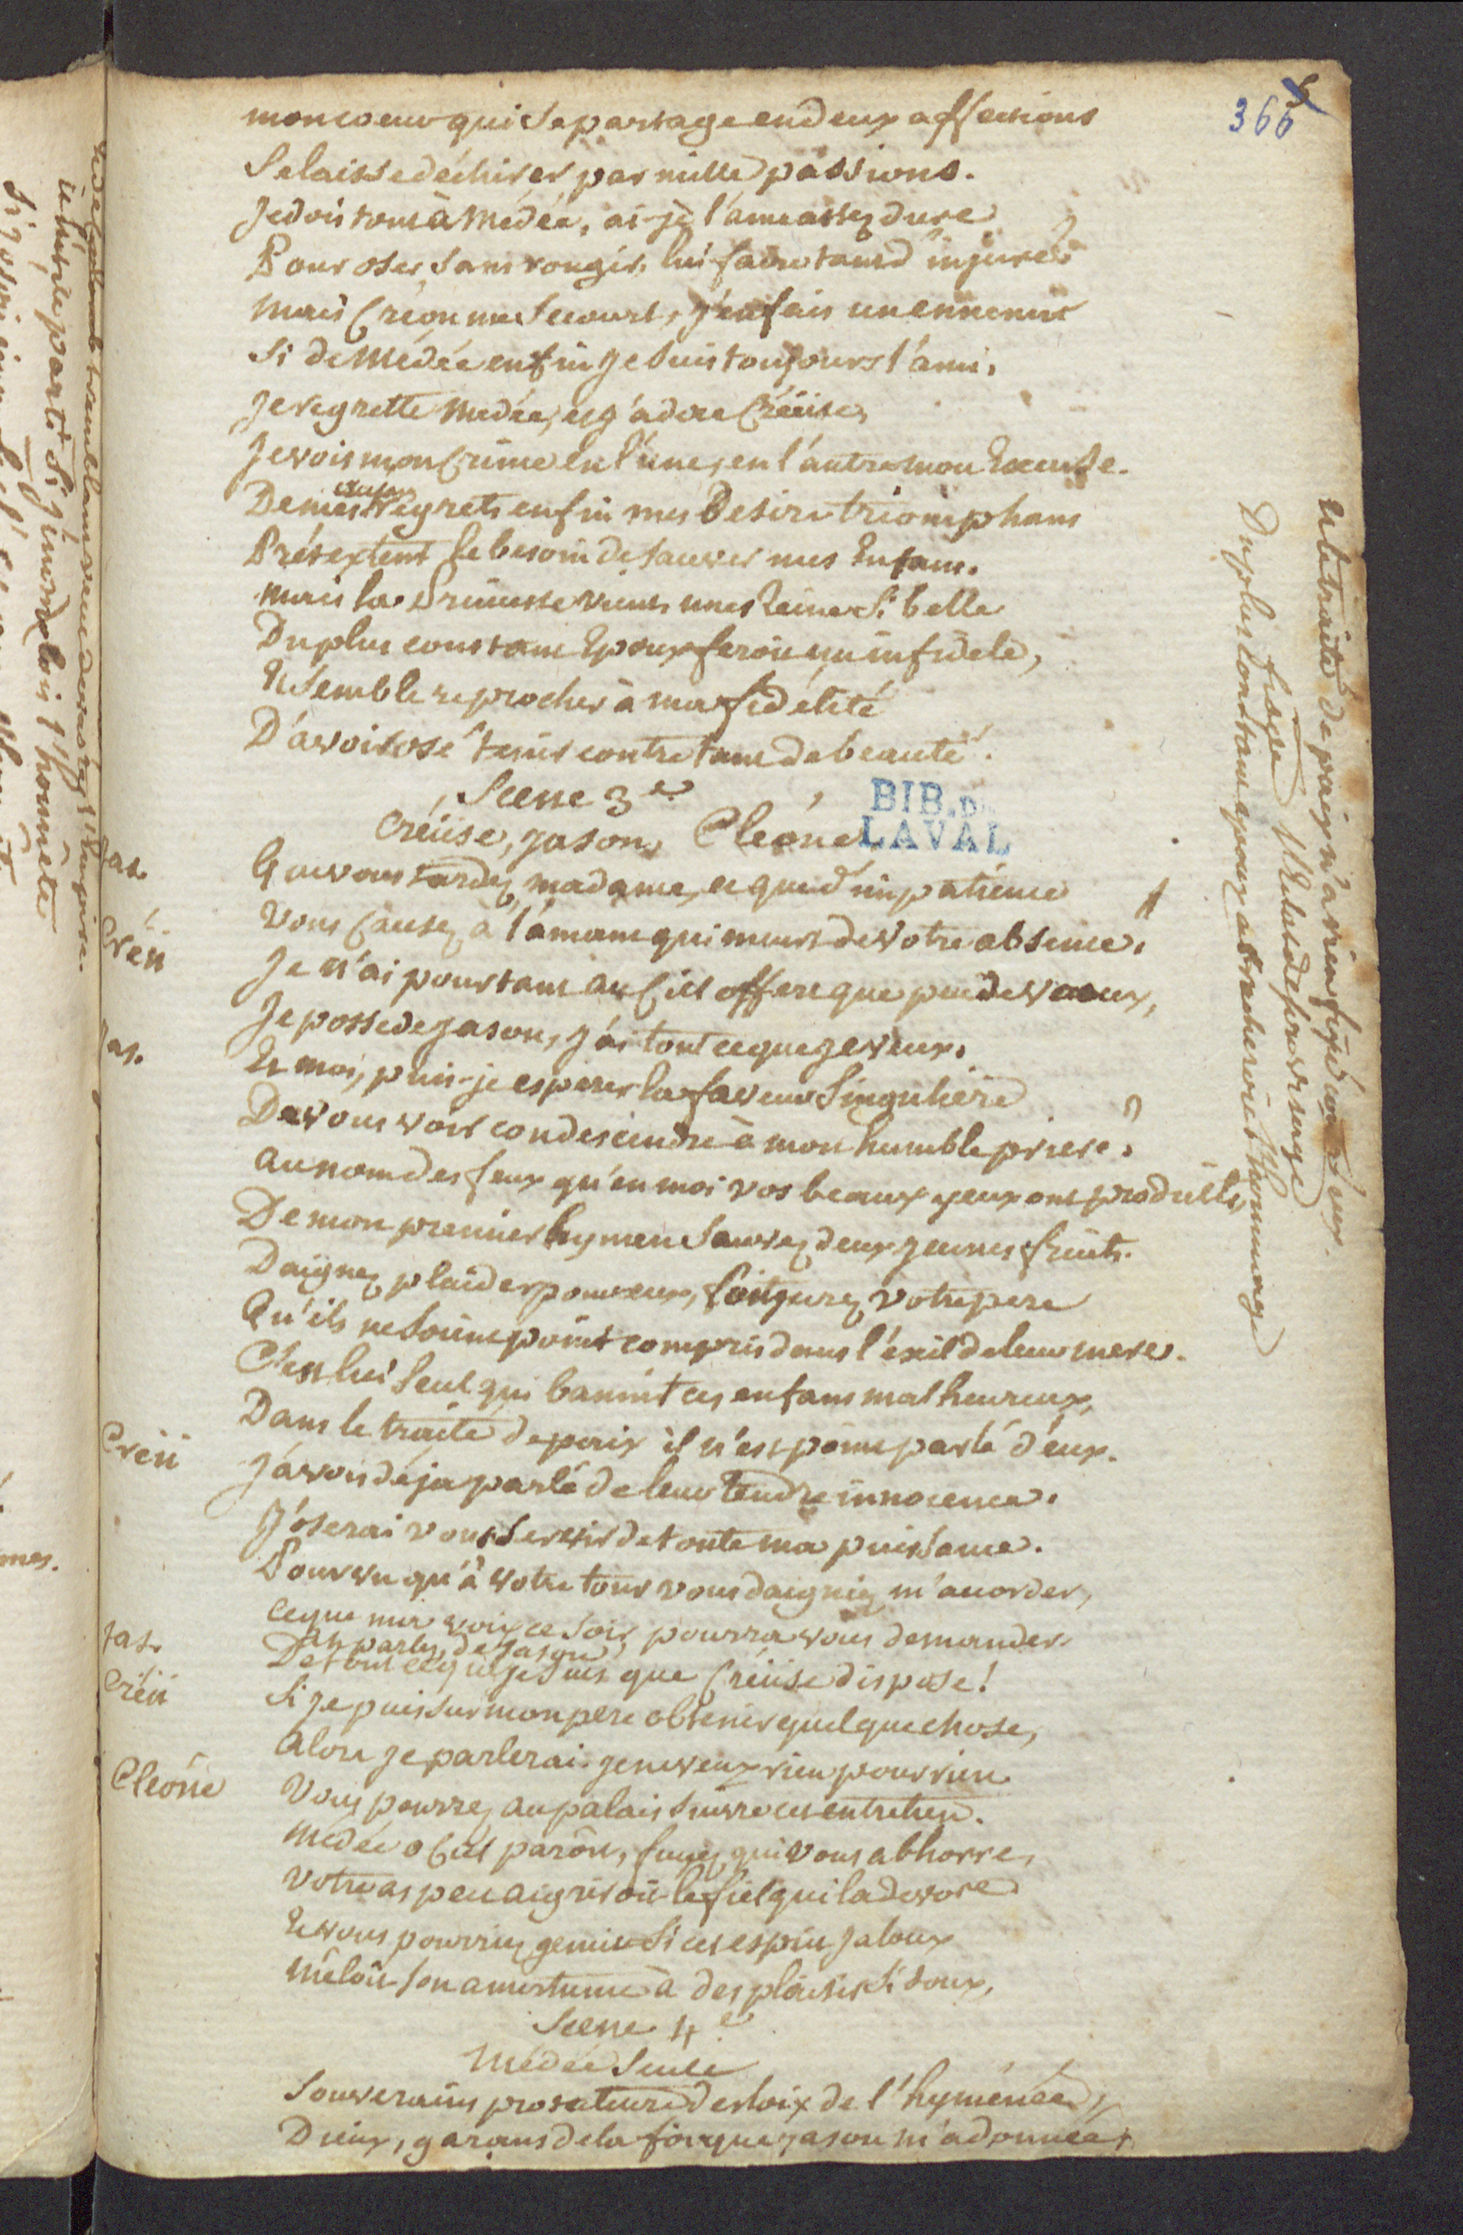 366
5
mon coeur qui se partage en deux affections
Se laisse déchirer par mille passions.
Je dois tout à Médée, ai-je l'ame assez dure
Pour oser sans rougir, lui faire tant d'injures?
mais Créon me secourt, j'en fais un ennemi
Si de Médée enfin je suis toujours l'ami.
Je regrette Médée, et j'adore Créüse,
Je vois mon Crime en l'une, en l'autre mon Excuse.
De mes regrets enfin mes Desirs triomphans
Prétextent le besoin de sauver mes Enfans.
mais la Princesse vient, une Reine si belle
Du plus constant Epoux feroit un infidele,
Et semble reprocher à ma fidélité
D'avoir osé tenir contre tant de beauté.
Scene 3e
Créüse, Jason, Cléone
BIB. DE LAVAL
Jas. Que vous tardez, madame, et que d'impatience
Vous causez à l'amant qui meurt de votre absence!
Créü Je n'ai pourtant au Ciel offert que peu de voeux,
Je possede Jason, j'ai tout ce que je veux.
Jas. Et moi, puis-je esperer la faveur Singuliere
De vous voir condescendre à mon humble priere?
au nom des feux qu'en moi vos beaux yeux ont produits,
De mon premier hymen sauvez deux jeunes fruits.
Daignez plaider pour eux, Conjurez votre pere
Qu'ils ne soient point compris dans l'éxil de leur mere.
C'est lui seul qui bannit ces enfans malheureux,
Dans le traité de paix il n'est point parlé d'eux.
Créü J'avois déja parlé de leur tendre innocence.
J'oserai vous servir de toute ma puissance.
Pourvu qu'à votre tour vous daigniez m'accorder,
Ce que ma voix ce soir pourra vous demander.
Jas. Ah parlez, de Jason
De tout ce que je suis que Créüse dispose!
Créü Si je puis sur mon pere obtenir quelque chose,
Alors je parlerai. je ne veux rien pour rien
Cléone Vous pourrez au palais suivre cet entretien.
Médée o Ciel paroît, fuyez qui vous abhorre,
Votre aspect aigriroit le fiel qui la devore
Et vous pourriez gemir si cet esprit jaloux
Mêloit son amertume à des plaisirs si doux,
Scene 4e
Médée seule
Souverains protecteurs des loix de l'hyménée,
Dieux, garans de la foi que Jason m'a donnée,
Et le traité de paix n'a rien fixé sur eux.
fixer l'éclat de son visage
Du plus constant epoux attacheroit l'hommage